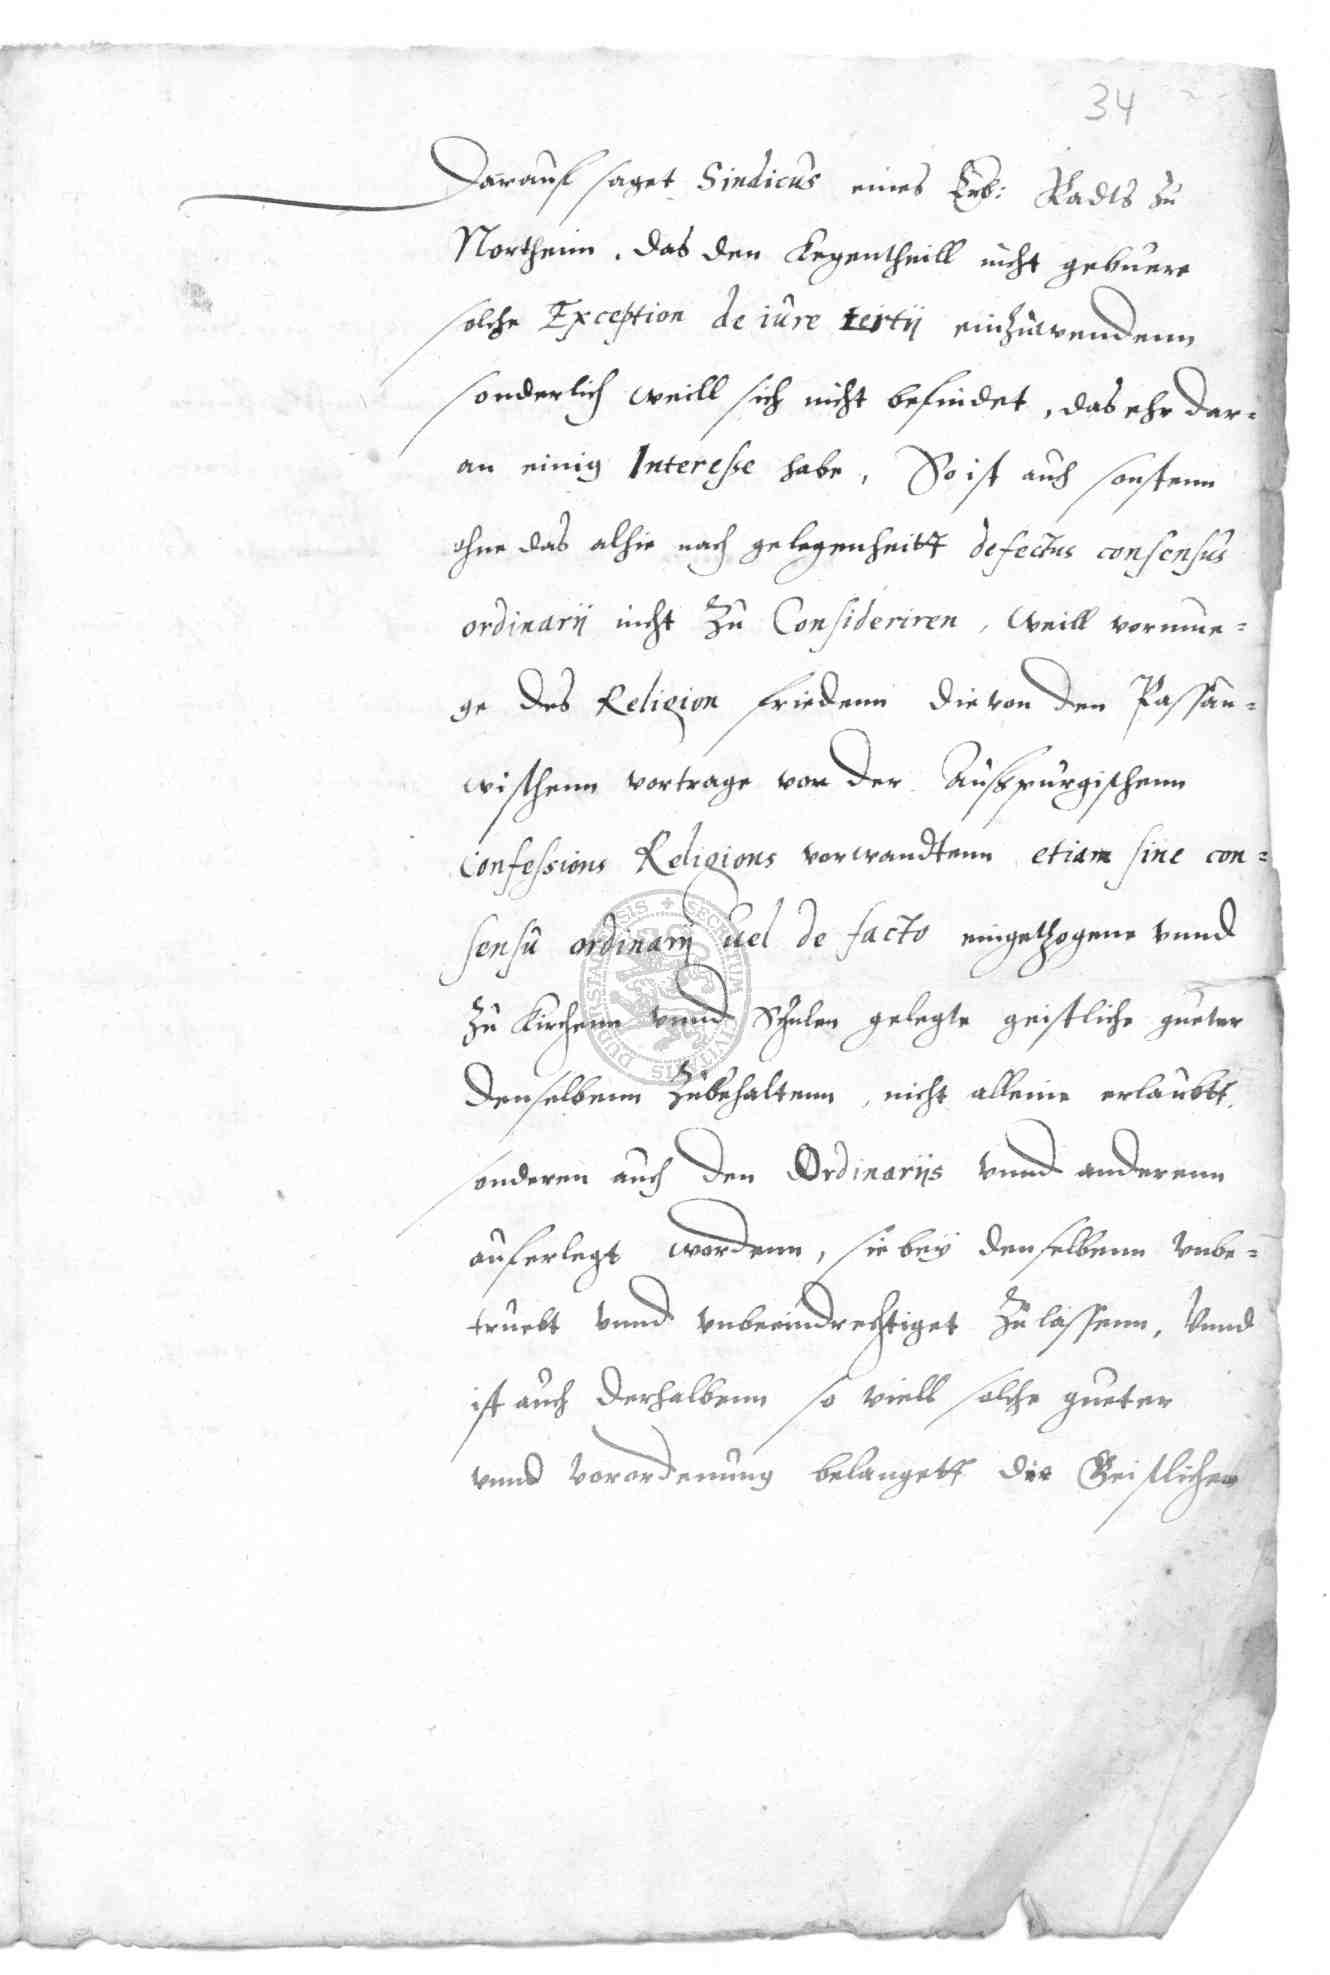 34
Darauf saget Sindicus eines Erb: Radts zu
Northeim, das den Kegentheill nicht gebuere
solche Exception de iure tertij einzuwendenn
sonderlich weill sich nicht befindet, das ehr dar=
an einig Interesse habe, So ist auch sonstenn
ohne das alhie nach gelegenheitt defectus consensus
ordinarij nicht zu Consideriren, weill vormue=
ge des Religion friedenn die von den Passau=
wischenn vortrage von der Außpurgischenn
Confessions Religions vorwandtenn etiam sine con=
sensu ordinarij uel de facto eingethzogene vnnd
zu Kirchenn vnnd Schulen gelegte geistliche gueter
denselbenn zubehaltenn, nicht alleine erlaubtt,
sonderen auch den Ordinarijs vnnd anderenn
auferlegt wordenn, sie bey denselbenn vnbe=
truebt vnnd vnbeeindrechtiget zu lassenn, Vnnd
ist auch derhalbenn so viell solche gueter
vnnd Vorordenung belangett die Geistlichen
SECRETUM CIVITATIS DUDERSTADENSIS